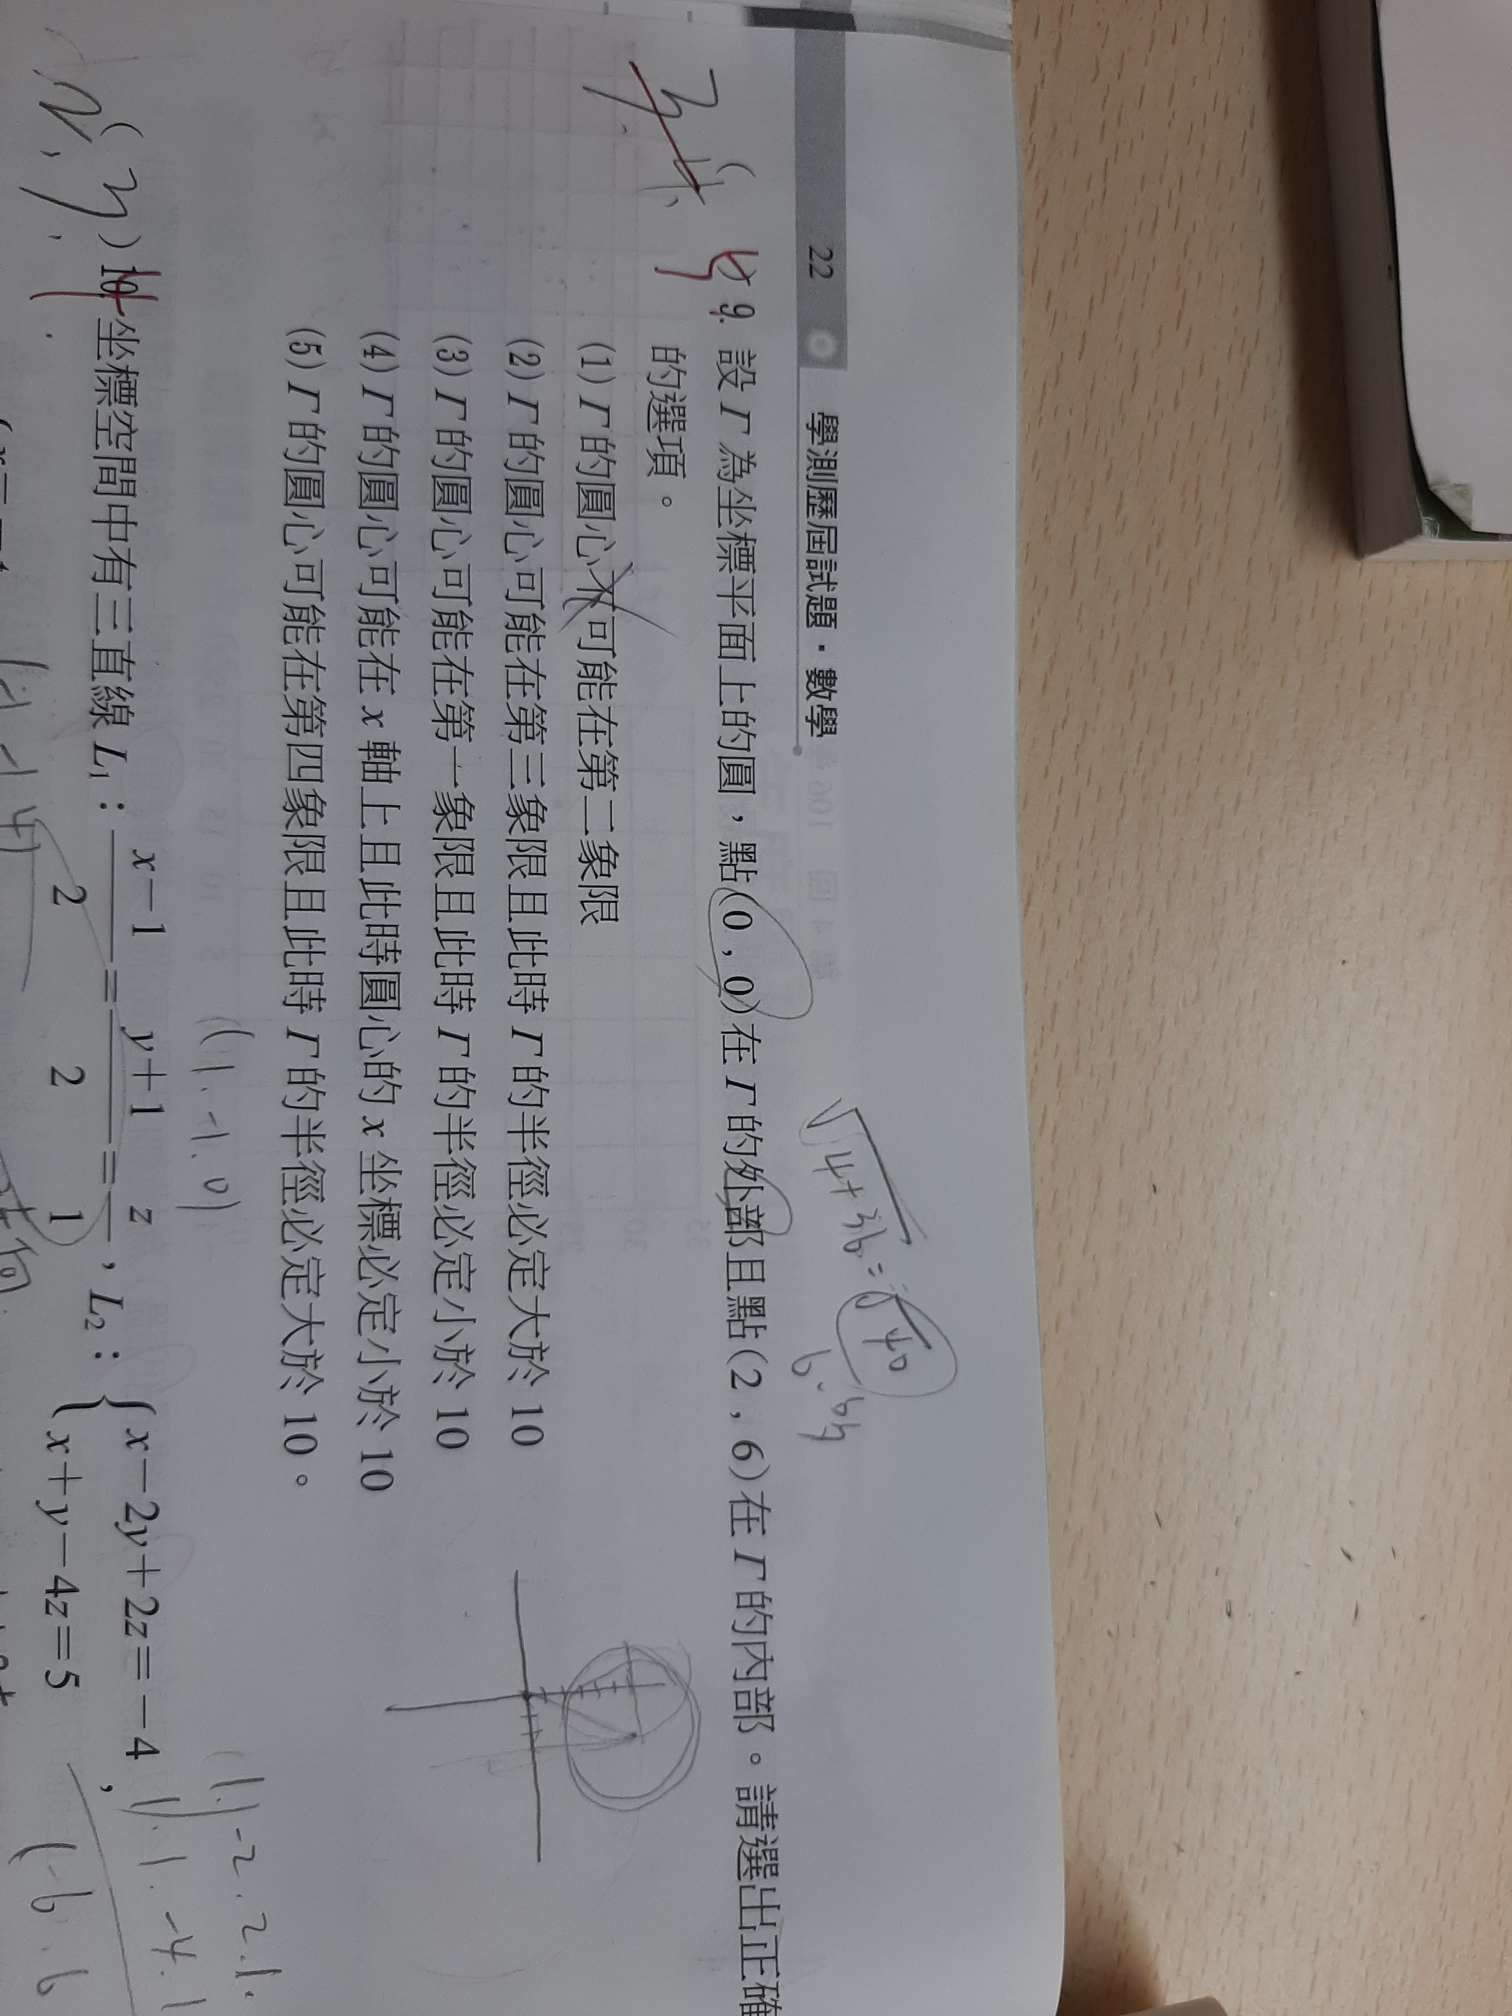 22 學測歷屆試題・數學
√4+36=√40
6.
9. 設 Γ 為坐標平面上的圓,點(0,0)在 Γ 的外部且點(2,6)在 Γ 的內部。請選出正確
的選項。
(1) Γ 的圓心不可能在第二象限
(2) Γ 的圓心可能在第三象限且此時 Γ 的半徑必定大於 10
(3) Γ 的圓心可能在第一象限且此時 Γ 的半徑必定小於 10
(4) Γ 的圓心可能在 x 軸上且此時圓心的 x 坐標必定小於 10
(5) Γ 的圓心可能在第四象限且此時 Γ 的半徑必定大於 10。
(1.-1.0)
(1.-2.2.1.
1.1.-4.1
)10. 坐標空間中有三直線 L₁:(x-1)/2=(y+1)/2=z/1,L₂:{x-2y+2z=-4, x+y-4z=5
(-6.6